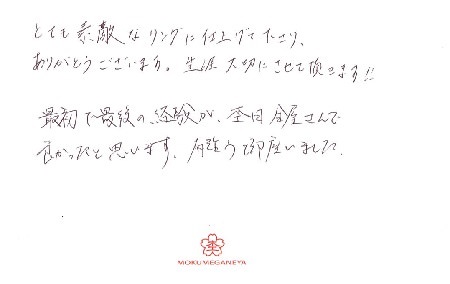 とても素敵なリングに仕上げて下さり、
ありがとうございます。生涯大切にさせて頂きます!!
最初で最後の経験が、杢目金屋さんで
良かったと思います。有難う御座いました。
MOKUMEGANEYA